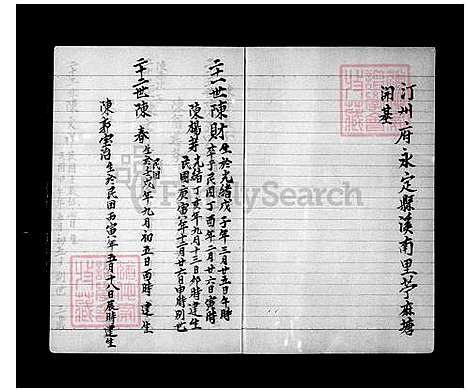 汀州府永定縣溪南里苧麻塘
開基
二十一世陳財
生於光緒戊子年二月廿五日午時
卒于民國丁酉年二月廿六日寅時
陳楊芽光緒丁亥年九月十三日卯時建生
民國庚寅年十二月廿六日申時別世
二十二世陳春
生於民國壬戌年九月初五日酉時建生
陳 宝治生於民國丙寅年五月十八日辰時建生
FamilySearch